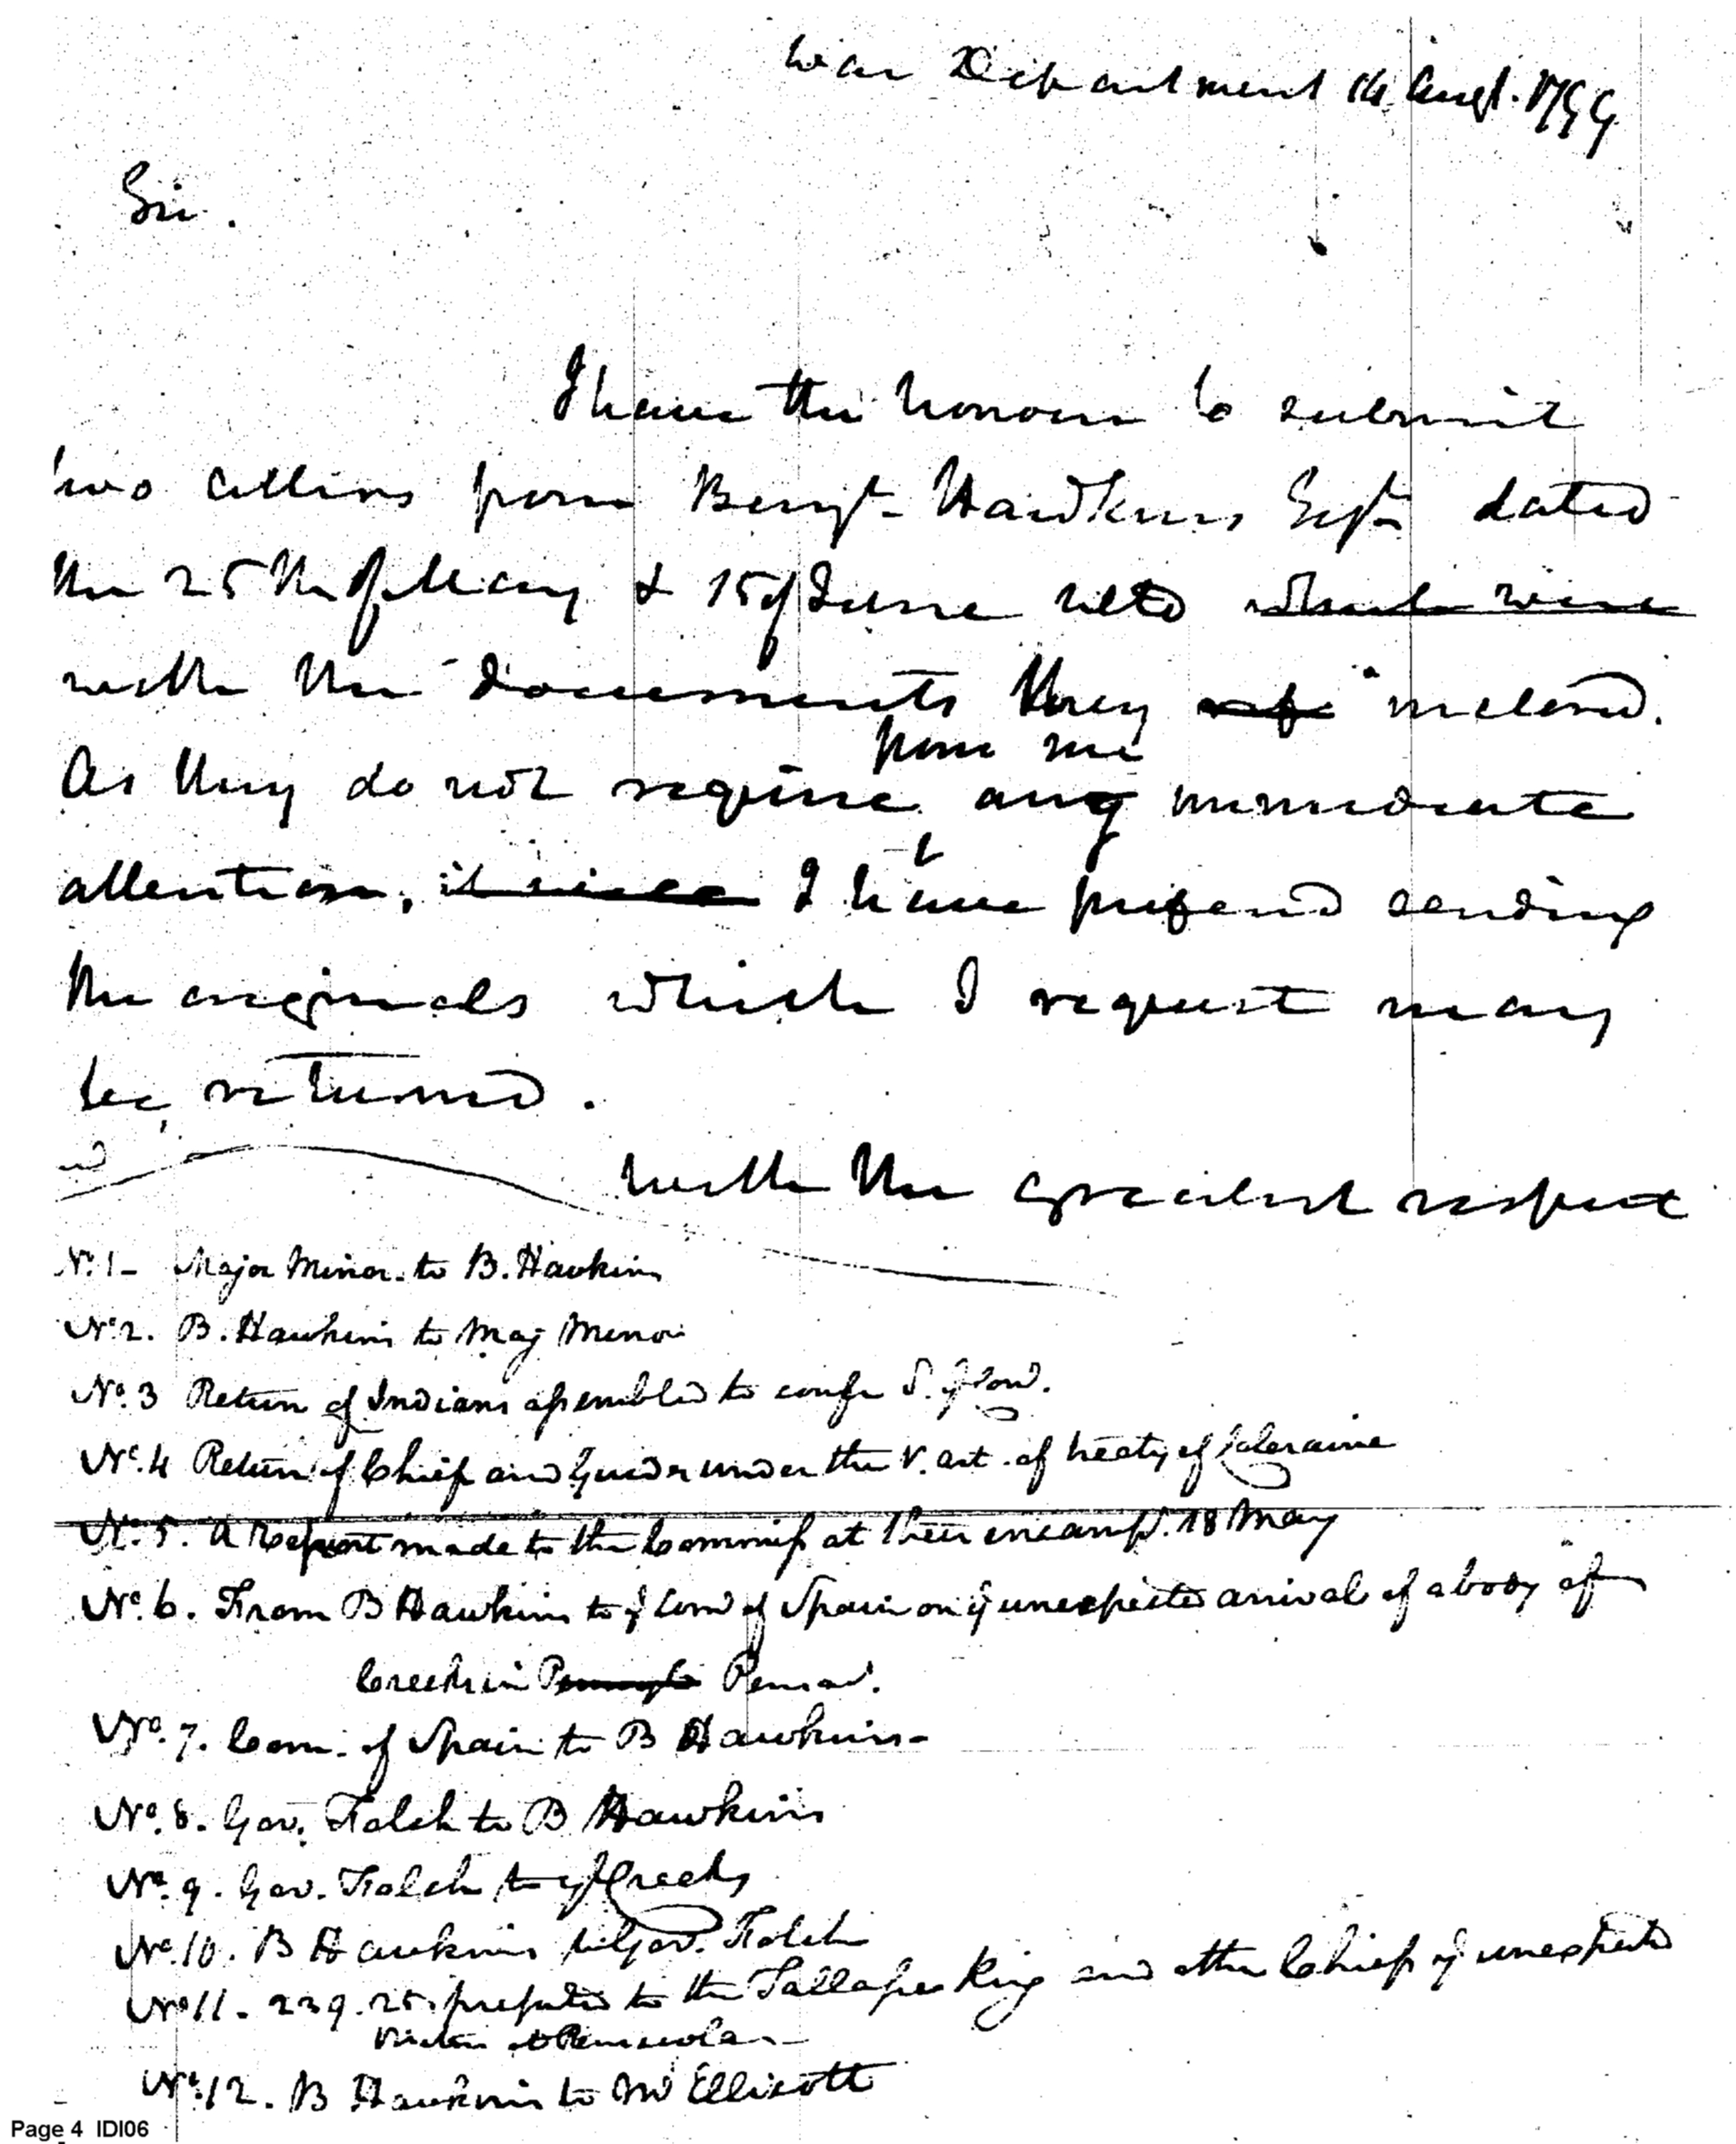 War Department 14 Augt. 1799
Sir.
I have the honour to submit
two letters from Benjn. Hawkins Esqr. dated
the 25th of May & 15 of June ulto which were
with the documents they inclosed.
from me
As they do not require any immediate
attention, it I have prefered sending
the originals which I request may
be returned.
with the greatest respect
No. 1 - Major Minor. to B. Hawkins
No. 2. B. Hawkins to Maj Minor
No. 3 Return of Indians assembled to confer
No. 4 Return of Chiefs and Guides under the V. art. of treaty of Coleraine
No. 5. A Report made to the Commiss at their encampt. 18 May
No. 6. From B Hawkins to ye Com of Spain on ye unexpected arrival of a body of
Creeks in Pensa.
No. 7. Com. of Spain to B Hawkins -
No. 8. Gov. Folch to B Hawkins
No. 9. Gov. Folch to ye Creeks
No. 10. B Hawkins to Gov. Folch
No 11. 23 9. 25. to the Tallassee King and other Chiefs ye unexpected
Visitors at Pensacola -
No. 12. B Hawkins to Mr Ellicott
Page 4 IDI06